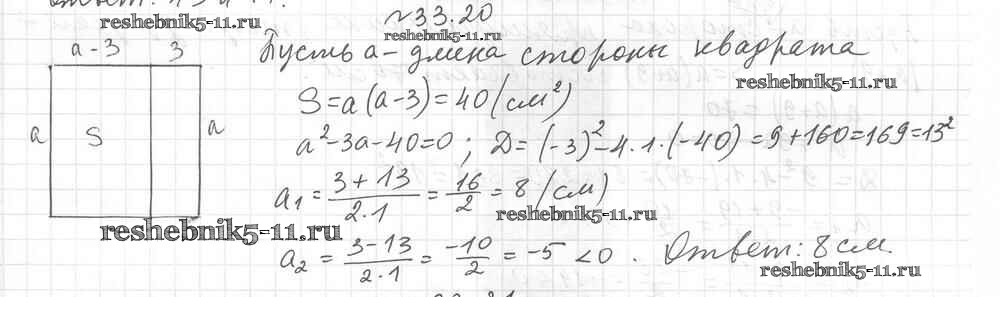 №33.20
reshebnik5-11.ru
reshebnik5-11.ru
a-3 3
Пусть a - длина стороны квадрата
reshebnik5-11.ru
S=a(a-3)=40(см²)
a S a
a²-3a-40=0; D=(-3)²-4·1·(-40)=9+160=169=13²
a₁ = (3+13)/(2·1) = 16/2 = 8 (см)
reshebnik5-11.ru
reshebnik5-11.ru
a₂ = (3-13)/(2·1) = -10/2 = -5 < 0. Ответ: 8 см.
reshebnik5-11.ru